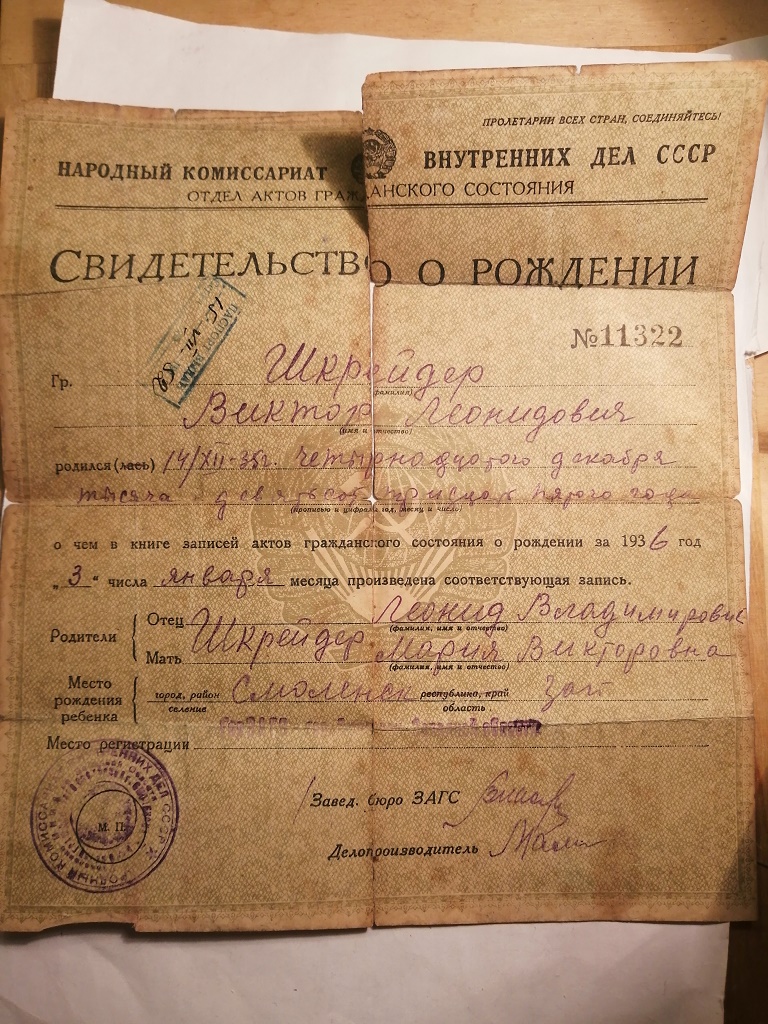 ПРОЛЕТАРИИ ВСЕХ СТРАН, СОЕДИНЯЙТЕСЬ!
НАРОДНЫЙ КОМИССАРИАТ ВНУТРЕННИХ ДЕЛ СССР
ОТДЕЛ АКТОВ ГРАЖДАНСКОГО СОСТОЯНИЯ
СВИДЕТЕЛЬСТВО О РОЖДЕНИИ
ПАСПОРТ ВЫДАН
15. VII-52
№11322
Гр. Шкрейдер
(фамилия)
Виктор Леонидович
(имя и отчество)
родился (лась) 14/XII-35г. четырнадцатого декабря
тысяча девятьсот тридцать пятого года
(прописью и цифрами год, месяц и число)
о чем в книге записей актов гражданского состояния о рождении за 1936 год
„3" числа января месяца произведена соответствующая запись.
Родители
Отец Шкрейдер Леонид Владимирович
(фамилия, имя и отчество)
Мать Мария Викторовна
(фамилия, имя и отчество)
Место рождения ребенка
город, район Смоленск республика, край Зап
селение область
Место регистрации
Завед. бюро ЗАГС
М. П.
Делопроизводитель